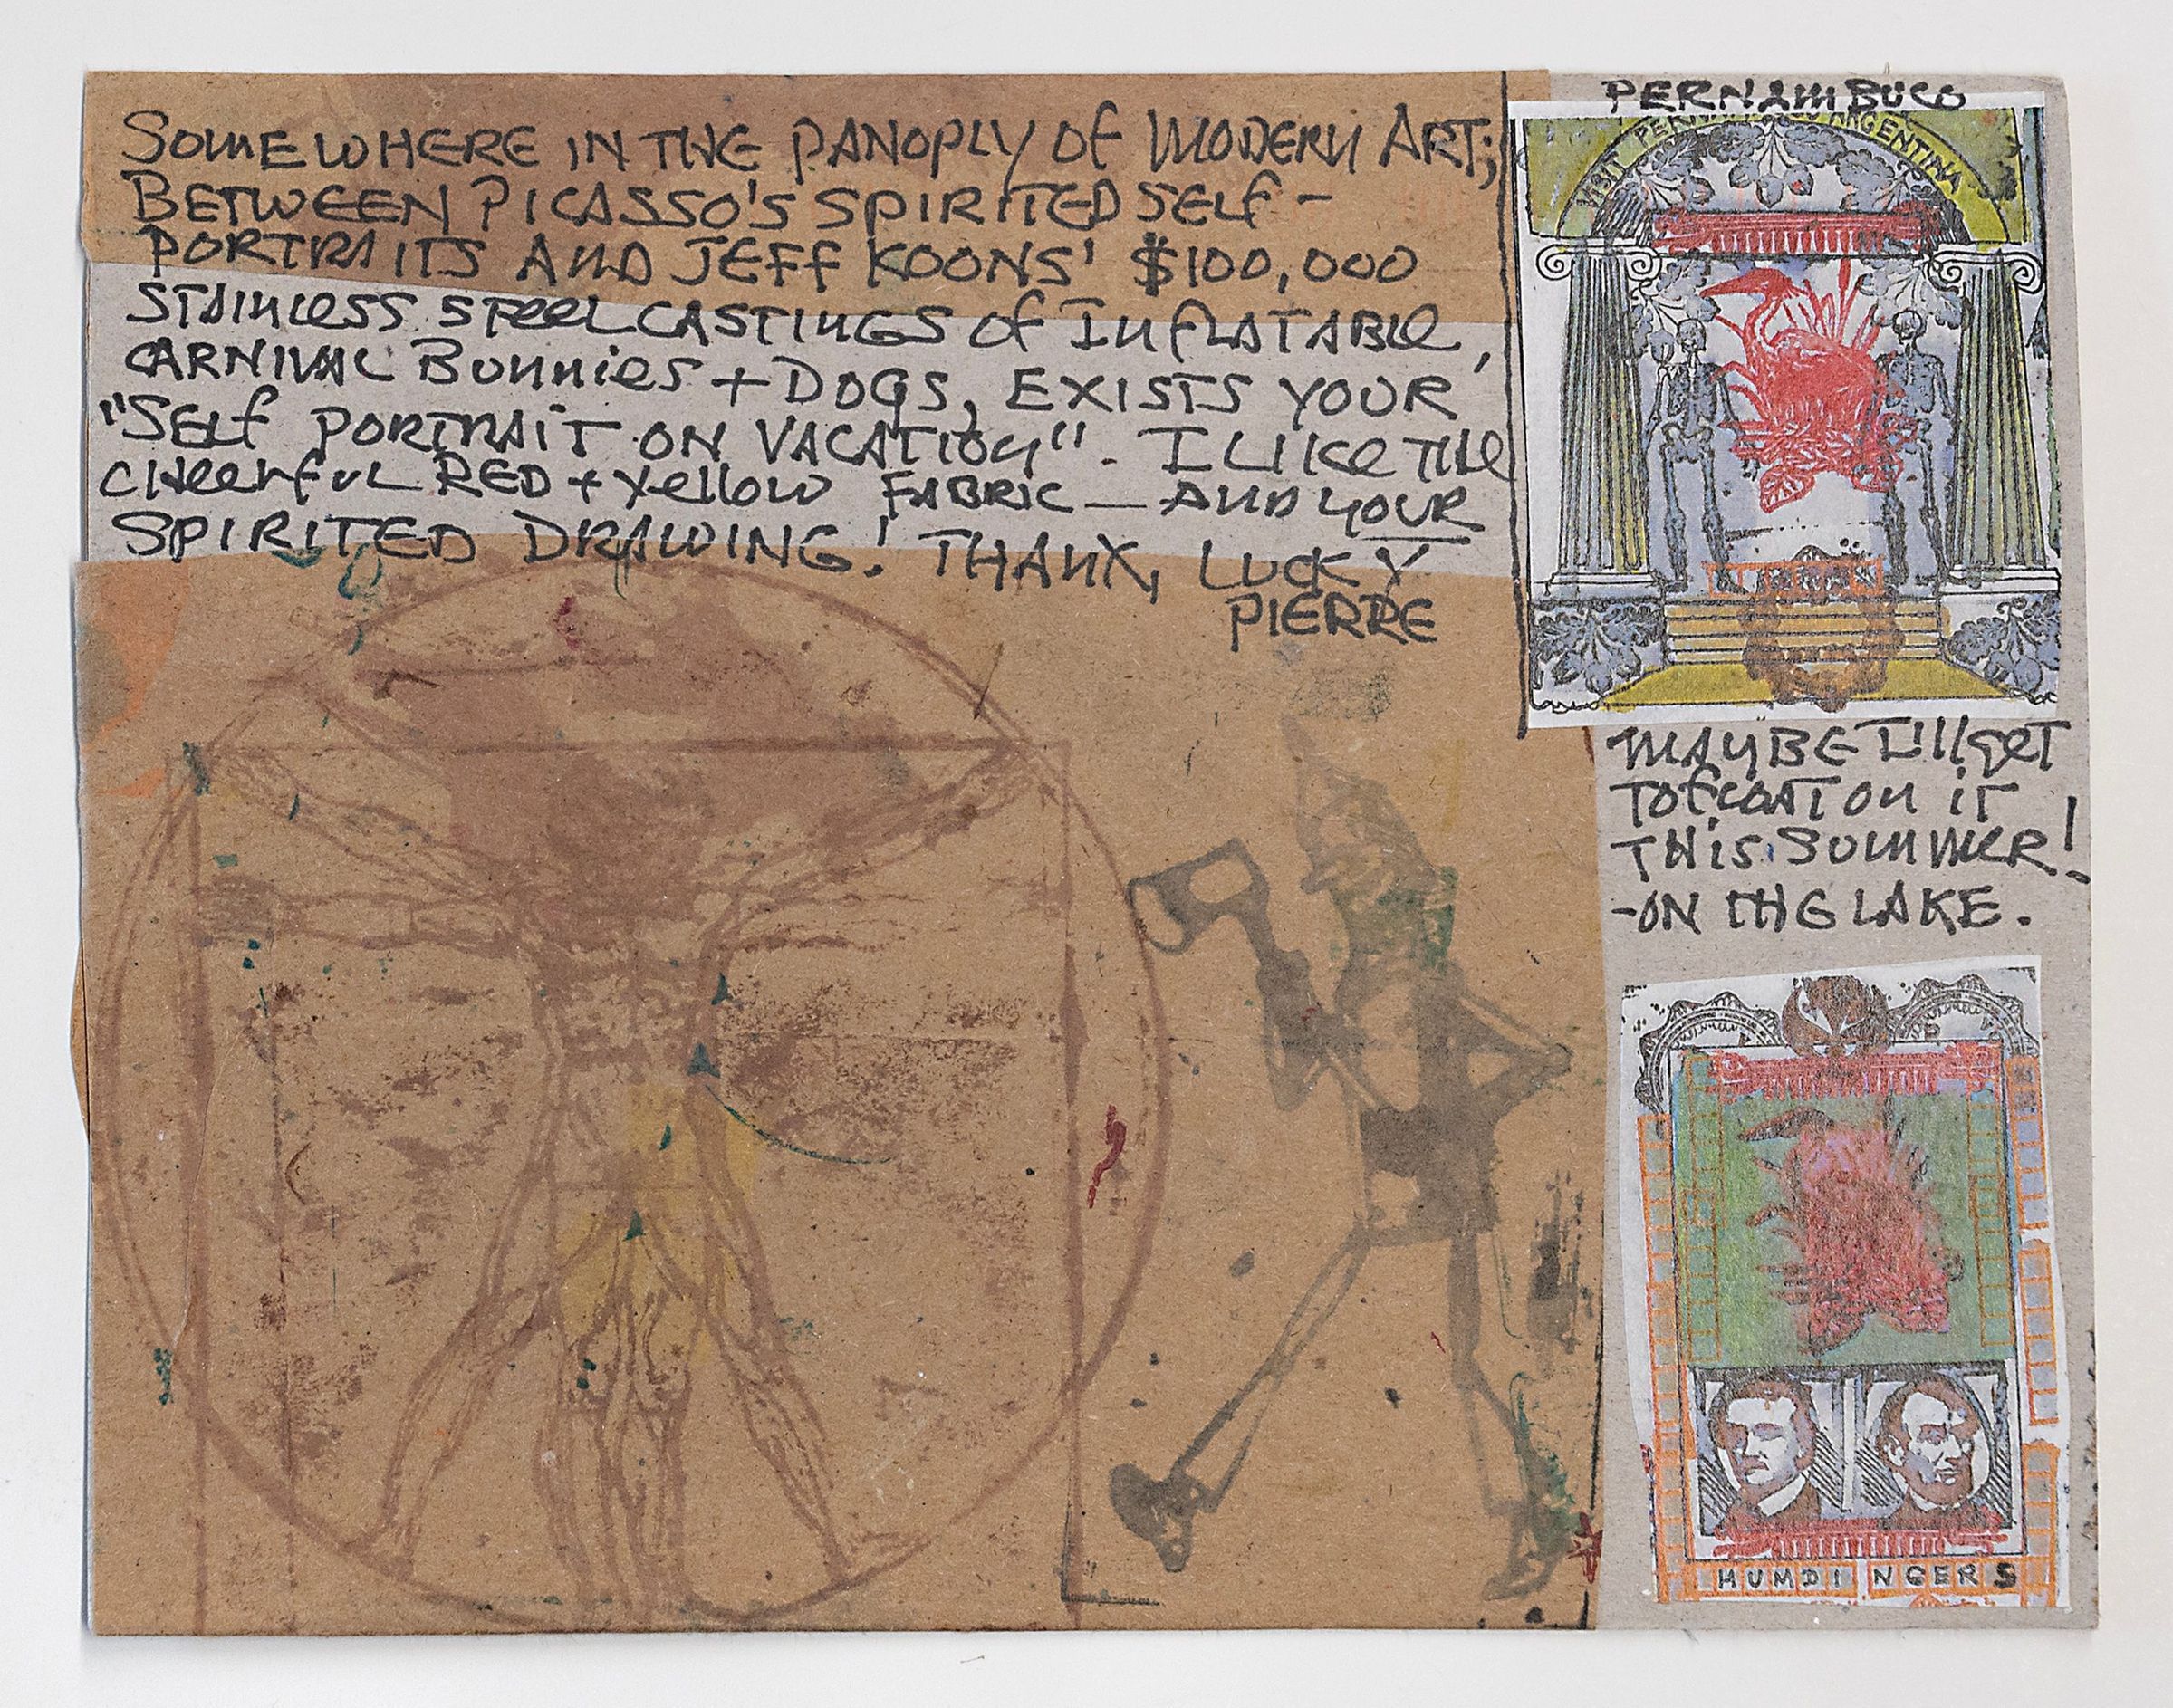 SOMEWHERE IN THE PANOPLY OF MODERN ART;
BETWEEN PICASSO'S SPIRITED SELF-
PORTRAITS AND JEFF KOONS' $100,000
STAINLESS STEEL CASTINGS OF INFLATABLE,
CARNIVAL BUNNIES + DOGS, EXISTS YOUR
"SELF PORTRAIT ON VACATION". I LIKE THE
CHEERFUL RED + YELLOW FABRIC — AND YOUR
SPIRITED DRAWING! THANX, LUCKY
PIERRE
PERNAMBUCO
VISIT PERNAMBUCO ARGENTINA
MAYBE I'll get
TO FLOAT ON IT
THIS SUMMER!
-ON THE LAKE.
HUMDINGERS